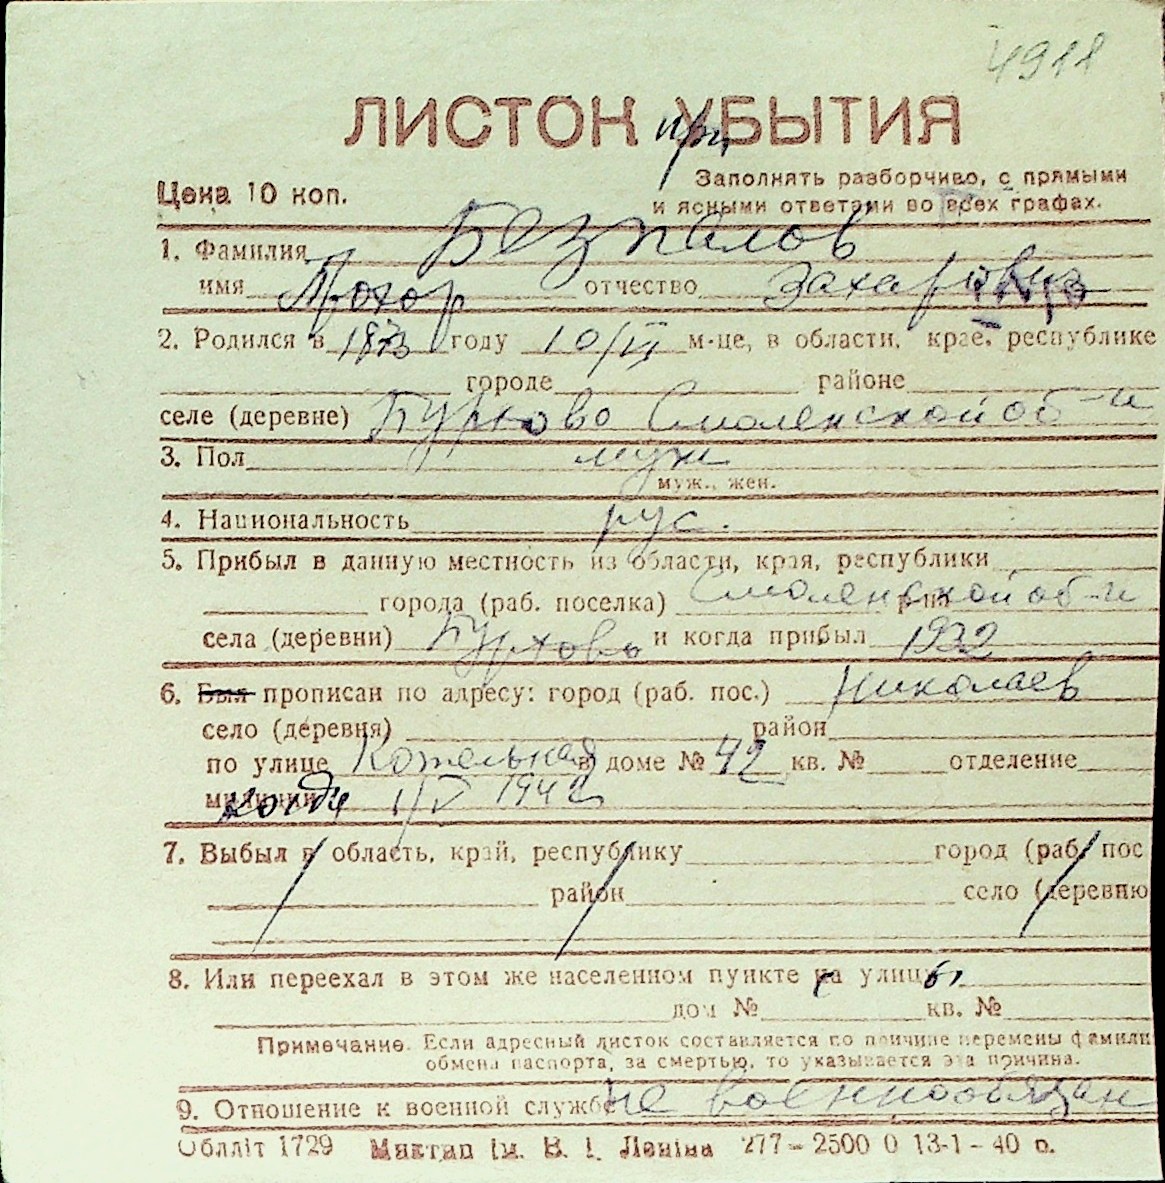 4911
ЛИСТОК при УБЫТИЯ
Цена 10 коп.
Заполнять разборчиво, с прямыми
и ясными ответами во всех графах.
1. Фамилия Безпалов
имя Прохор отчество Захарович
2. Родился в 1873 году 10/II м-це, в области, крае, республике
городе районе
селе (деревне) Бурково Смоленской об-и
3. Пол муж
муж., жен.
4. Национальность рус.
5. Прибыл в данную местность из области, края, республики
города (раб. поселка) Смоленской об-и р-на
села (деревни) и когда прибыл 1932
6. Был прописан по адресу: город (раб. пос.) Николаев
село (деревня) район
по улице Котельная в доме № 42 кв. № отделение
милиции когда 1/V 1942
7. Выбыл в область, край, республику город (раб. пос
район село (деревню
8. Или переехал в этом же населенном пункте с улицы
дом № кв. №
Примечание. Если адресный листок составляется по причине перемены фамили
обмена паспорта, за смертью, то указывается эта причина.
9. Отношение к военной службе не военнообязан
Облліт 1729 Миктип ім. В. І. Леніна 277-2500 0 13-1-40 р.